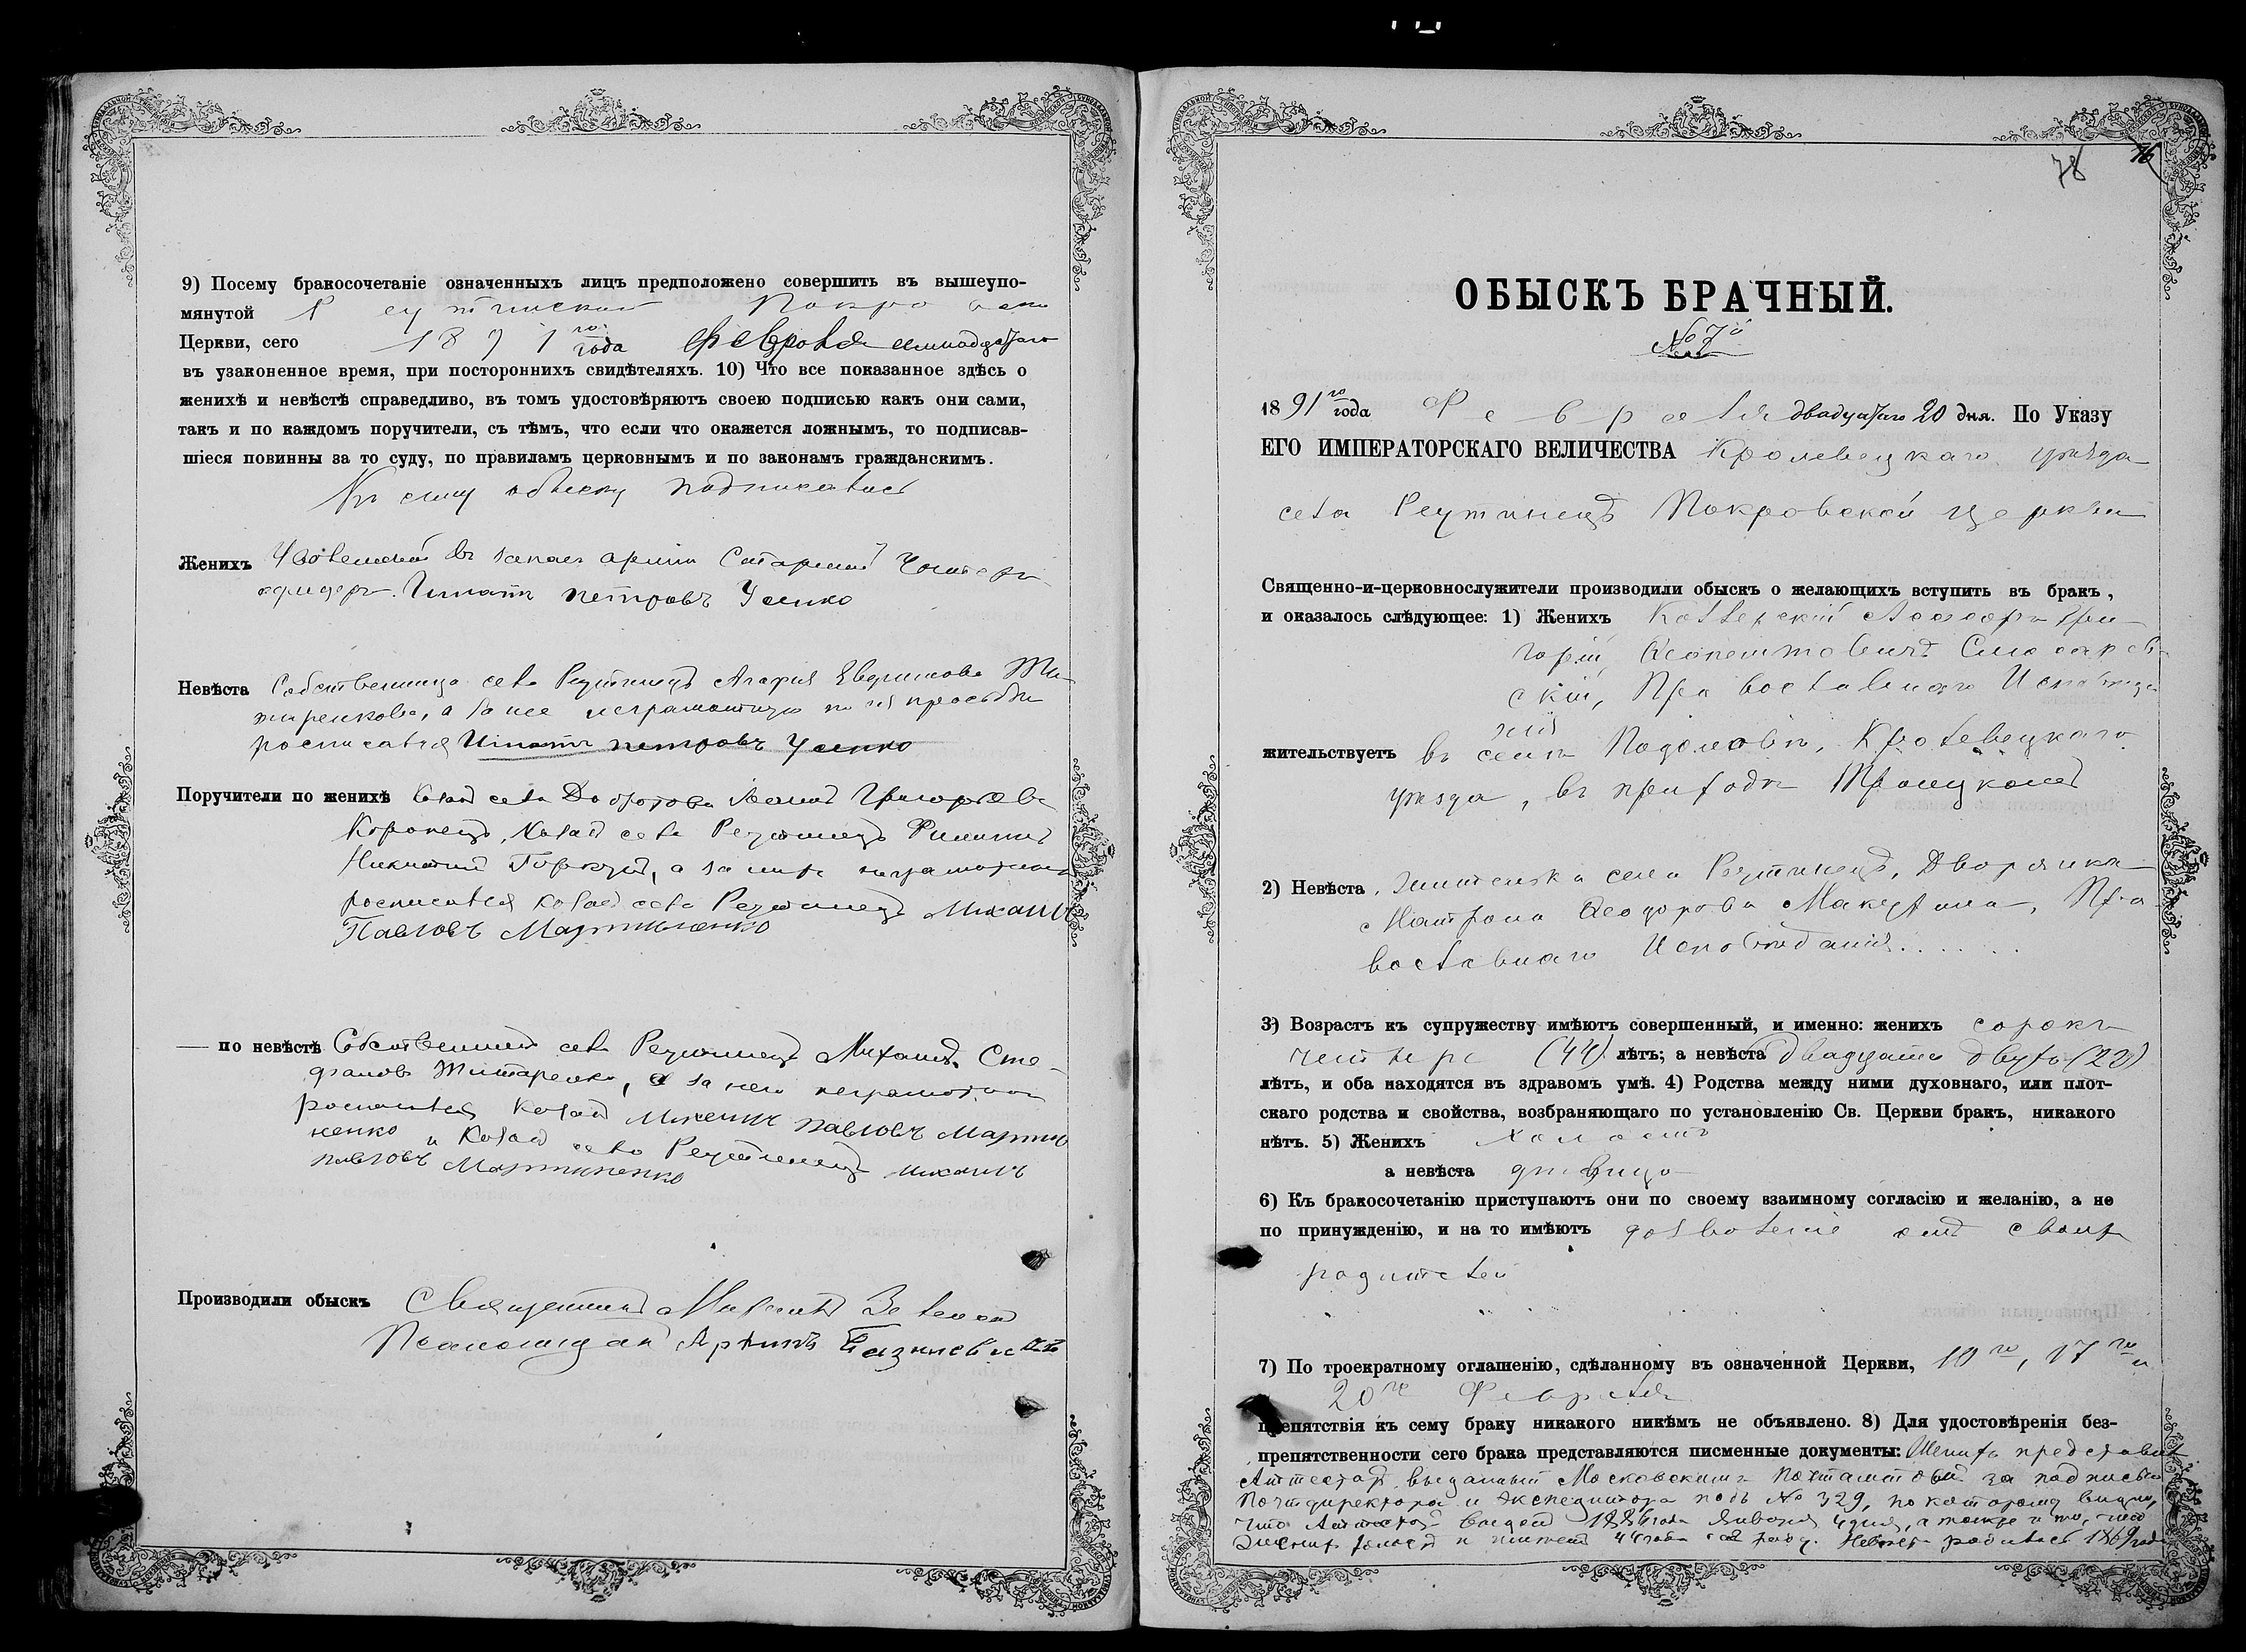 9) Посему бракосочетаніе означенныхъ лицъ предположено совершить въ вышеупо-
мянутой Реутинской Покровской
Церкви, сего 1891го года Февраля
въ узаконенное время, при постороннихъ свидѣтеляхъ. 10) Что все показанное здѣсь о
женихѣ и невѣстѣ справедливо, въ томъ удостовѣряютъ своею подписью какъ они сами,
такъ и по каждомъ поручители, съ тѣмъ, что если что окажется ложнымъ, то подписав-
шіеся повинны за то суду, по правиламъ церковнымъ и по законамъ гражданскимъ.
Къ сему обыску подписались
Женихъ Уволенный въ запас арміи Старшій Унтеръ
офицеръ Игнатъ Петровъ Усенко
Невѣста Собственница села Реутинецъ Агафія
а за нее неграмотную по ея просьбѣ
росписался Игнатъ Петровъ Усенко
Поручители по женихѣ Козак села Григорьевъ
Козак села Реутинецъ Филиппъ
а за нихъ неграмотныхъ
росписался козакъ села Реутинецъ Михаилъ
Павловъ Мартыненко
— по невѣстѣ Собственникъ села Реутинецъ Михаилъ Сте-
фановъ а за него неграмотнаго
росписался Козакъ Михаилъ Павловъ Марты
ненко и Козакъ села Реутинецъ Михаилъ
Павловъ Мартыненко
Производили обыскъ Священникъ
Псаломщикъ
78 76
ОБЫСКЪ БРАЧНЫЙ.
№ 7й
1891го года Февраля двадцатаго 20 дня. По Указу
ЕГО ИМПЕРАТОРСКАГО ВЕЛИЧЕСТВА Кролевецкаго уѣзда
села Реутинецъ Покровской церкви
Священно-и-церковнослужители производили обыскъ о желающихъ вступить въ бракъ,
и оказалось слѣдующее: 1) Женихъ Коллежскій Ассесоръ Гри-
горій
скій, Православнаго Исповѣда
нія
жительствуетъ въ селѣ Подоловѣ, Кролевецкаго
уѣзда, въ приходѣ Троицкомъ
2) Невѣста, жителька села Реутинецъ, Дворянка
Матрона Ѳеодорова Пра
вославнаго Исповѣданія......
3) Возрастъ къ супружеству имѣютъ совершенный, и именно: женихъ сорокъ
четыре (44) лѣтъ; а невѣста двадцати двухъ (22)
лѣтъ, и оба находятся въ здравомъ умѣ. 4) Родства между ними духовнаго, или плот-
скаго родства и свойства, возбраняющаго по установленію Св. Церкви бракъ, никакого
нѣтъ. 5) Женихъ холостъ
а невѣста дѣвица
6) Къ бракосочетанію приступаютъ они по своему взаимному согласію и желанію, а не
по принужденію, и на то имѣютъ дозволеніе отъ своихъ
родителей
7) По троекратному оглашенію, сдѣланному въ означенной Церкви, 10го, 17го и
20го Февраля
препятствія къ сему браку никакого никѣмъ не объявлено. 8) Для удостовѣренія без-
препятственности сего брака представляются писменные документы: Женихъ представилъ
Аттестатъ, выданный Московскимъ Почтамтомъ за подписью
Почтдиректора и Экспедитора подъ № 329, по которому видно,
что Аттестатъ выданъ 1886 года Января 4 дня, а также и то, что
женихъ холостъ и имѣетъ 44 года отъ роду. Невѣста родилась 1869 года